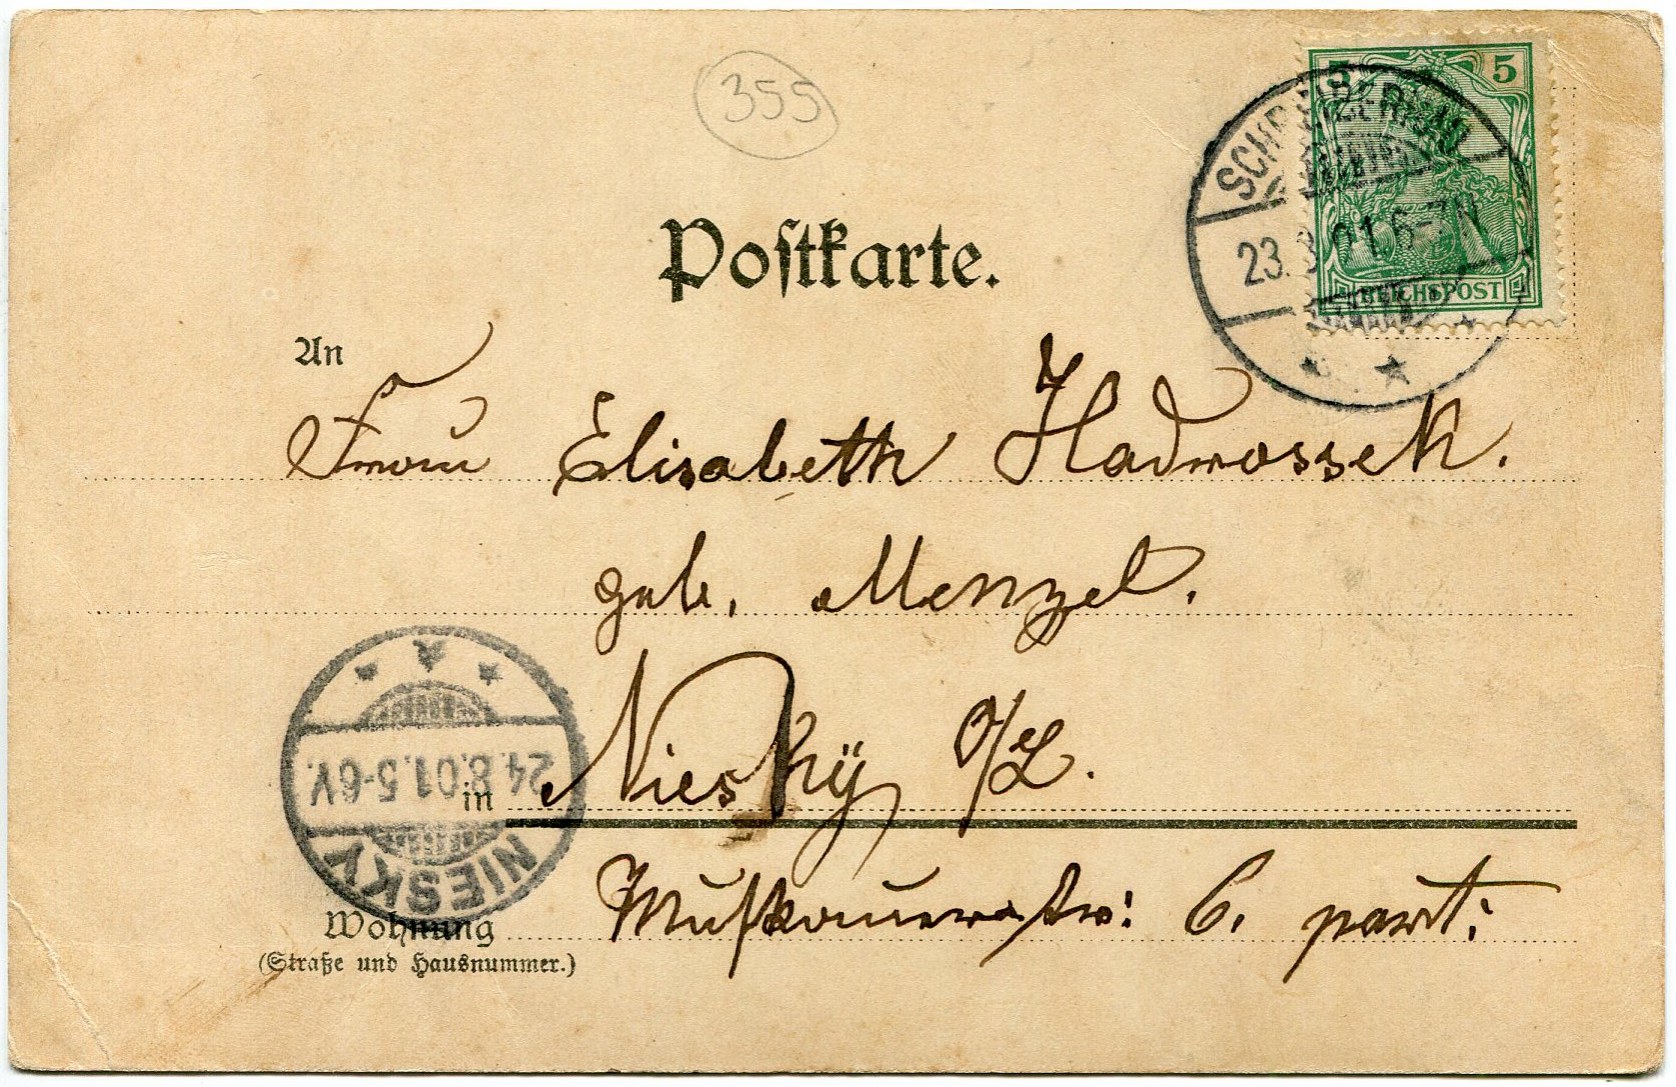 355
Postkarte.
5 5
REICHSPOST
SCHREIBERHAU
23. 8. 01. 6-7 N
An
Frau Elisabeth Hadrossek.
geb. Menzel.
Niesky O/L.
in
24.8.01.5-6V.
NIESKY
Muskauerstr: 6. part:
Wohnung
(Straße und Hausnummer.)